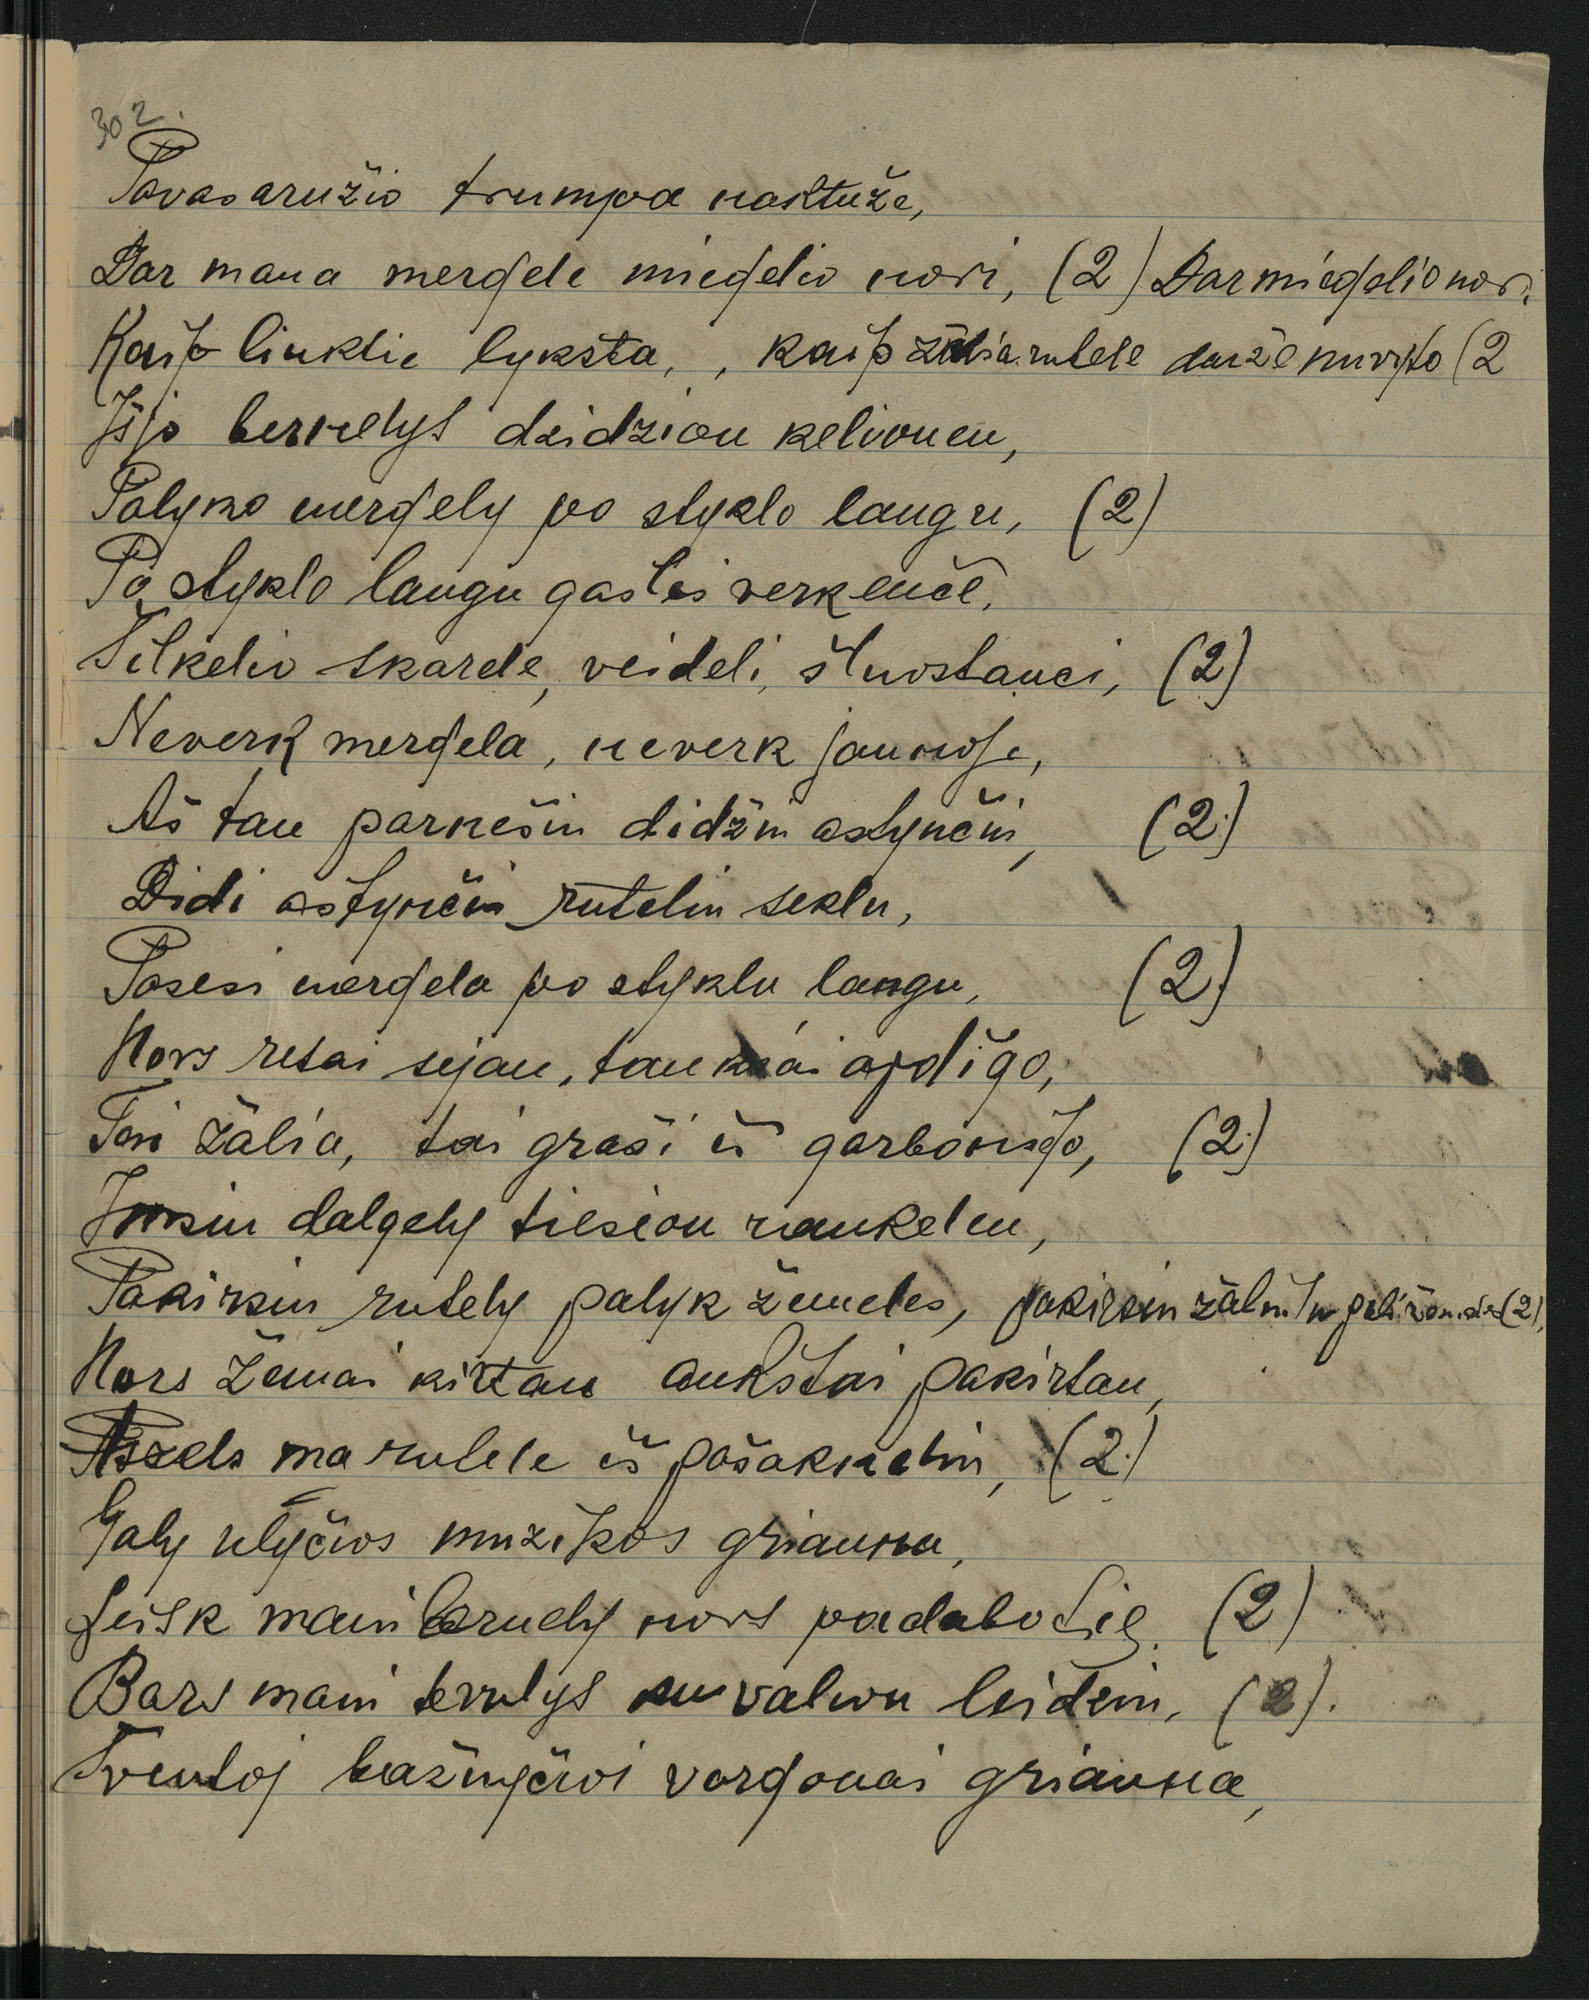 302.
Pavasaružio trumpa naktuže,
Dar mana mergele miegelio nori, (2) Dar miegelio nori.
Kaip linklie lyksta, , kaip žalia rutele darže nuvyto (2
Išjo bernelys didzion kelionen,
Palyko mergely po styklo langu, (2)
Po styklo langu gaslei verkenče,
Šilkelio skarele, veideli, šluostanci, (2)
Neverk mergela, neverk jaunoje,
Aš tau parnešiu didžiu astynčiu, (2)
Didi aštynčiu ruteliu seklu,
Pasesi mergela po styklu langu, (2)
Nors retai sejau, tankiai apdigo,
Tai žalia, tai graši iš garbonijo, (2)
Imsiu dalgely tiesion rankelen,
Pakirsiu rutely palyk žemeles, pakirsiu (2),
Nors žemai kirtau aukštai pakirtau,
Atzels ma rutele iš pašakneliu, (2)
Galy ulyčios muzikos griauna,
Leisk mani bernely nors padabotie. (2)
Bars mani tevulys nuvaliou leidziu, (2).
Šventoj bažnyčioi vargonai griauna,